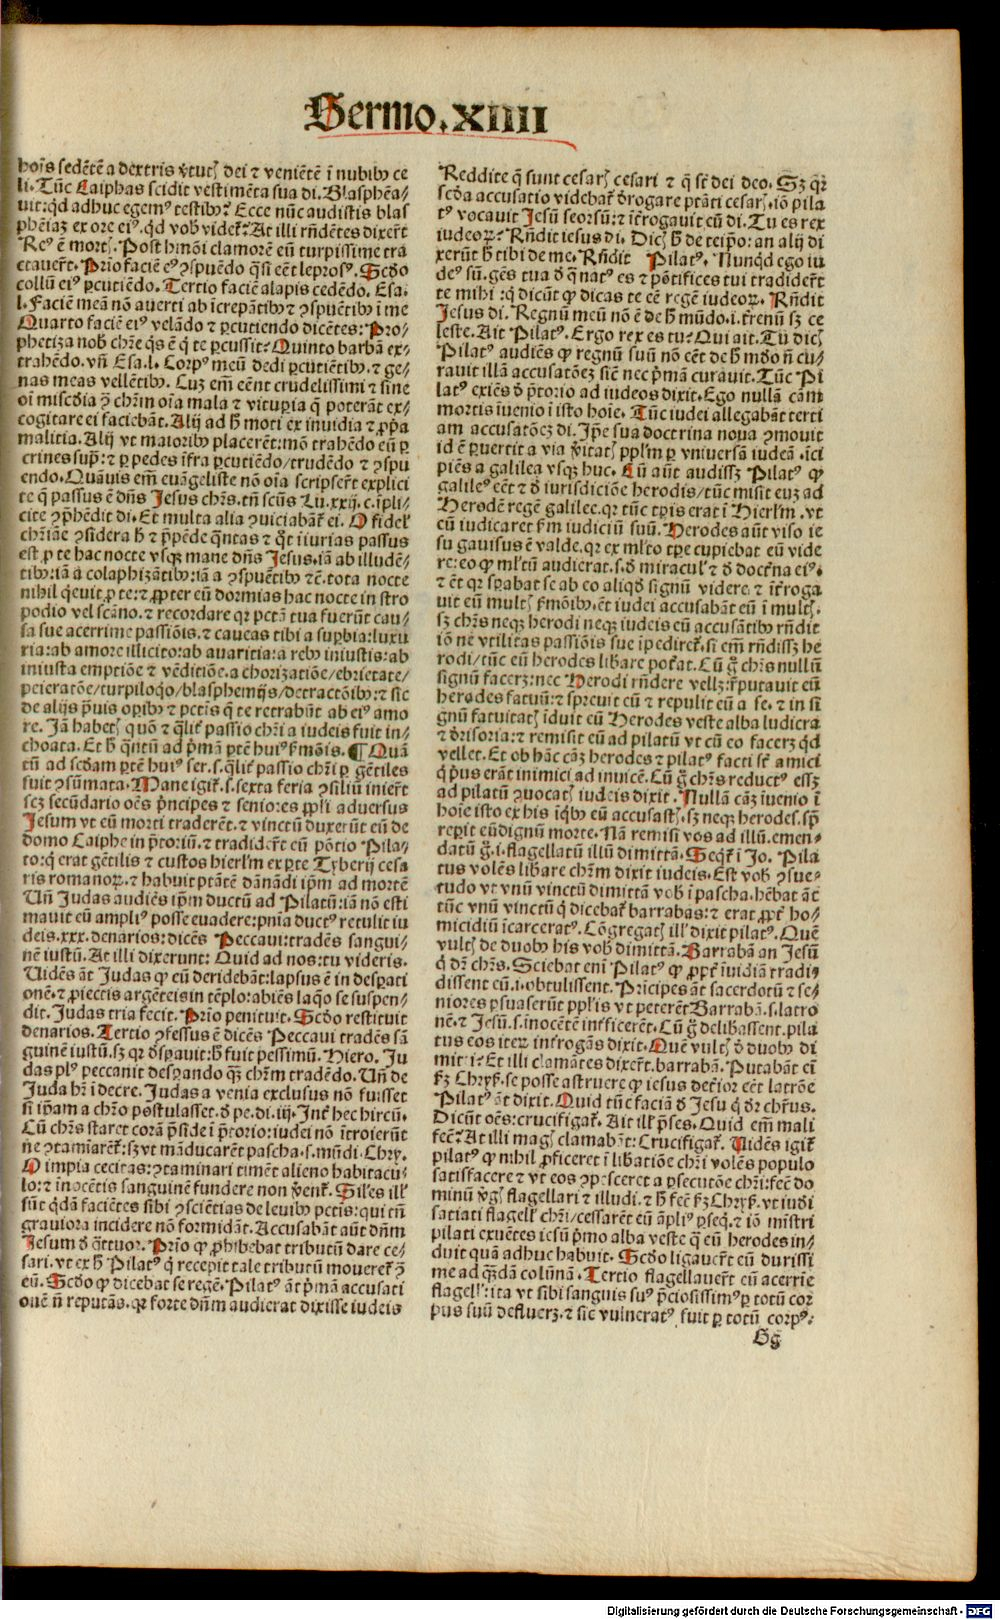 Sermo.XIIII
hoīs sedētē a dextris v̄tutꝭ dei ⁊ veniētē ī nubibꝰ ce
li. Tūc Caiphas scidit vestimēta sua di. Blasphēa⸗
uit: qd adhuc egemꝰ testibꝰ? Ecce nūc audistis blas
phēiaꝫ ex ore eiꝰ. qd vob videt̄? At illi rn̄dētes dixert̄
Reꝰ ē mortꝭ. Post hmōi clamorē eū turpissime tra
ctauert̄. Prīo faciē eꝰ ꝯspuēdo q̄si eēt leprosꝰ. Scd̄o
collū eiꝰ ꝑcutiēdo. Tertio faciē alapis cedēdo. Esa.
l. Faciē meā nō auerti ab īcrepātibꝰ ⁊ ꝯspuētibꝰ ī me
Quarto faciē eiꝰ velādo ⁊ ꝑcutiendo dicētes: Pro⸗
phetiza nob chr̄e qs ē q̄ te ꝑcussit? Quinto barbā ex⸗
trahēdo. vn̄ Esa.l. Corpꝰ meū dedi ꝑcutiētibꝰ. ⁊ ge⸗
nas meas vellētibꝰ. Cuꝫ em̄ eēnt crudelissimi ⁊ sine
oī mis̄cdia ꝯ̄ chr̄m oīa mala ⁊ vituꝑia q̄ poterāt ex⸗
cogitare ei faciebāt. Alij ad h̄ moti ex inuidia ⁊ ꝓp̄a
malitia. Alij vt maioribꝰ placerēt: mōn trahēdo eū ꝑ
crines supꝰ: ⁊ ꝑ pedes īfra ꝑcutiēdo/trudēdo ⁊ ꝯspu
endo. Quāuis em̄ euāgeliste nō oīa scripsert̄ explici
te q̄ passus ē dn̄s Jesus chr̄s. tn̄ scūs Lu.xxij.c. īpli⸗
cite ꝯp̄hēdit di. Et multa alia ꝯuiciabāt̄ ei. O fideł
chr̄iāe ꝯsidera h̄ ⁊ ꝑpēde q̄ntas ⁊ qt̄ iiurias passus
est ꝓ te hac nocte vsqꝫ mane dn̄s Jesus. iā ab illudē⸗
tibꝰ: iā a colaphizātibꝰ: iā a ꝯspuētibꝰ ⁊c̄. tota nocte
nihil q̄euit ꝓ te: ⁊ ꝓpter eū dormias hac nocte in stro
podio vel scāno. ⁊ recordare qꝛ pctā tua fuerūt cau⸗
sa sue acerrime passiōis. ⁊ caueas tibi a suꝑbia: luxu
ria: ab amore illicito: ab auaritia: a rebꝰ iniustis: ab
iniusta emptiōe ⁊ vēditiōe. a chorizatiōe/ebrietate/
peieratōe/turpiloqo/blasphemijs/detractōibꝰ: ⁊ sic
de alijs p̄uis oꝑibꝰ ⁊ pctīs q̄ te retrahūt ab eiꝰ amo
re. Jā habetꝭ quō ⁊ q̄lit̄ passio chr̄i a iudeis fuit in⸗
choata. Et h̄ q̄ntū ad p̄mā ꝑtē huiꝰ ẜmōis. ¶ Quā
tū ad sc̄dam ꝑtē huiꝰ ser. s. q̄lit̄ passio chr̄i ꝑ gētiles
fuit ꝯsūmata. Mane igit̄. s. sexta feria ꝯsiliū iniert̄
scꝫ secūdario oēs p̄ncipes ⁊ seniores ppłi aduersus
Jesum vt eū morti traderēt. ⁊ vinctū duxerūt eū de
domo Caiphe in p̄toriū. ⁊ tradidert̄ eū pōtio Pila⸗
to: q̄ erat gētilis ⁊ custos hierłm ex ꝑte Tyberij cesa
ris romanoꝝ. ⁊ habuit ptātē dānādi ip̄m ad mortē
Un̄ Judas audiēs ip̄m ductū ad Pilatū: iā nō esti
mauit eū ampliꝰ posse euadere: pn̄ia ductꝰ retulit iu
deis.xxx. denarios: dicēs Peccaui: tradēs sangui⸗
nē iustū. At illi dixerunt: Quid ad nos: tu videris.
Uidēs āt Judas ꝙ eū deridebāt: lapsus ē in despati
onē. ⁊ ꝓiectis argēteis in tēplo: abiēs laqo se suspen⸗
dit. Judas tria fecit. Prīo penituit. Scd̄o restituit
denarios. Tertio ꝯfessus ē dicēs Peccaui tradēs sā
guinē iustū. sꝫ qꝛ dꝭꝑauit: h̄ fuit pessimū. Hiero. Ju
das plꝰ peccauit desꝑando qꝫ chr̄m tradēdo. Un̄ de
Juda hr̄ ī decre. Judas a venia exclusus nō fuisset
si ip̄am a chr̄o postulasset. d̄ pe. di.iij. Int̄ hec hircū.
Cū chr̄s staret corā p̄side ī p̄torio: iudei nō ītroierūt
ne ꝯtamīarēt̄: sꝫ vt māducarēt pascha. s. mūdi. Chry.
O impia cecitas: ꝯtaminari timēt alieno habitacu⸗
lo: ⁊ inocētis sanguinē fundere non v̄ent̄. Siłes iłł
sūt qdā faciētes sibi ꝯsciētias de leuibꝰ pctīs: qui tn̄
grauiora incidere nō formidāt. Accusabāt aūt dn̄m
Jesum d̄ q̄ttuor. Prīo ꝙ ꝓhibebat tributū dare ce⸗
sari. vt ex h̄ Pilatꝰ q̄ recepit tale tributū moueret̄ ꝯ̄
eū. Scd̄o ꝙ dicebat se regē. Pilatꝰ āt p̄mā accusati
onē n̄ reputās. qꝛ forte dn̄m audierat dixisse iudeis
Reddite q̄ sunt cesarꝭ cesari ⁊ q̄ st̄ dei deo. Sꝫ qꝛ
scd̄a accusatio videbat̄ d̄rogare ptāti cesarꝭ. iō pila
tꝰ vocauit Jesū seorsū: ⁊ īt̄rogauit eū di. Tu es rex
iudeoꝝ? Rn̄dit iesus di. Dicꝭ h̄ de teip̄o: an alij di
xerūt h̄ tibi de me. Rn̄dit Pilatꝰ. Nunqd ego iu
deꝰ sū. gēs tua d̄ q̄ natꝰ es ⁊ pōtifices tui tradidert̄
te mihi: q̄ dicūt ꝙ dicas te eē regē iudeoꝝ. Rn̄dit
Jesus di. Regnū meū nō ē de h̄ mūdo. i. t̄renū sꝫ ce
leste. Ait Pilatꝰ. Ergo rex es tu? Qui ait. Tu dicꝭ
Pilatꝰ audiēs ꝙ regnū suū nō eēt de h̄ mūdo n̄ cu⸗
rauit illā accusatōeꝫ sic̄ nec p̄mā curauit. Tūc Pi
latꝰ exiēs d̄ p̄torio ad iudeos dixit. Ego nullā cām
mortis iuenio ī isto hoīe. Tūc iudei allegabāt terti
am accusatōeꝫ di. Ip̄e sua doctrina noua ꝯmouit
id ē ꝑuertit a via v̄itatꝭ ppłm ꝑ vniuersā iudeā. īci
piēs a galilea vsqꝫ huc. Cū aūt audissꝫ Pilatꝰ ꝙ
galileꝰ eēt ⁊ d̄ iurisdiciōe herodis/tūc misit euꝫ ad
Herodē regē galilee. qꝛ tūc tꝑis erat ī Hierłm. vt
eū iudicaret ẜm iudiciū suū. Herodes aūt viso ie
su gauisus ē valde. qꝛ ex młto tꝑe cupiebat eū vide
re: eo ꝙ młtū audierat. s. d̄ miracuł ⁊ d̄ doct̄na eiꝰ.
⁊ ēt qꝛ sꝑabat se ab eo aliqd signū videre. ⁊ īt̄roga
uit eū multꝭ ẜmōibꝰ. ēt iudei accusabāt eū ī multꝭ.
sꝫ chr̄s neqꝫ herodi neqꝫ iudeis eū accusātibꝰ rn̄dit
iō ne vtilitas passiōis sue īpediret̄. si em̄ rn̄dissꝫ he
rodi/tūc eū herodes libare poꝉat. Cū g̊ chr̄s nullū
signū facerꝫ: nec Herodi rn̄dere vellꝫ: r̄putauit eū
herodes fatuū: ⁊ spreuit eū ⁊ repulit eū a se. ⁊ in si
gnū fatuitatꝭ īduit eū Herodes veste alba ludicra
⁊ d̄risoria: ⁊ remisit eū ad pilatū vt cū eo facerꝫ qd
vellet. Et ob hāc cāꝫ herodes ⁊ pilatꝰ facti st̄ amici
q̄ p̄us erāt inimici ad inuicē. Cū g̊ chr̄s reductꝰ essꝫ
ad pilatū ꝯuocatꝭ iudeis dixit. Nullā cāꝫ iuenio ī
hoīe isto ex his ī qbꝰ eū accusastꝭ. sꝫ neqꝫ herodes. sp̄
reꝑit eū dignū morte. Nā remisi vos ad illū. emen⸗
datū g̊. i. flagellatū illū dimittā. Seqt̄ ī Jo. Pila
tus volēs libare chr̄m dixit iudeis. Est vob ꝯsue⸗
tudo vt vnū vinctū dimittā vob ī pascha. hēbat āt
tūc vnū vinctū q̄ dicebat̄ barrabas: ⁊ erat ꝓpt̄ ho⸗
micidiū īcarceratꝰ. Cōgregatꝭ iłł dixit pilatꝰ. Quē
vultꝭ de duobꝰ his vob dimittā. Barrabā an Jesū
q̄ dr̄ chr̄s. Sciebat eni Pilatꝰ ꝙ ꝓpt̄ īuidiā tradi⸗
dissent eū. i. obtulissent. Prīcipes āt sacerdotū ⁊ se⸗
niores ꝑsuaserūt ppłis vt peterēt Barrabā. s. latro
nē. ⁊ Jesū. s. inocētē int̄ficerēt. Cū g̊ delibassent. pila
tus eos iteꝝ int̄rogās dixit. Quē vultꝭ d̄ duobꝰ di
mitti? Et illi clamātes dixert̄. barrabā. Putabāt eī
ẜꝫ Chryẜ. se posse astruere ꝙ iesus det̄ior eēt latrōe
Pilatꝰ āt dixit. Quid tūc faciā d̄ Jesu q̄ dr̄ chr̄us.
Dicūt oēs: crucifigat̄. Ait iłł p̄ses. Quid em̄ mali
fec̄? At illi magꝭ clamabāt: Crucifigat̄. Uidēs igit̄
pilatꝰ ꝙ nihil ꝓficeret ī libatiōe chr̄i volēs populo
satisfacere ⁊ vt eos ꝯpesceret a ꝑsecutōe chr̄i: fec̄ do
minū v̄gꝭ flagellari ⁊ illudi. ⁊ h̄ fec̄ ẜꝫ Chryẜ. vt iudi
satiati flageł chr̄i/cessarēt eū āpliꝰ ꝑseq̄. ⁊ iō mīstri
pilati exuētes iesū p̄mo alba veste q̄ eū herodes in⸗
duit quā adhuc habuit. Scd̄o ligauert̄ eū durissi
me ad qdā colūnā. Tertio flagellauert̄ eū acerrie
flageł: ita vt sibi sanguis suꝰ p̄ciosissimꝰ ꝑ totū cor
pus suū deflu̇erꝫ. ⁊ sic̄ vulneratꝰ fuit ꝑ totū corpꝰ:
Gg
Digitalisierung gefördert durch die Deutsche Forschungsgemeinschaft - DFG